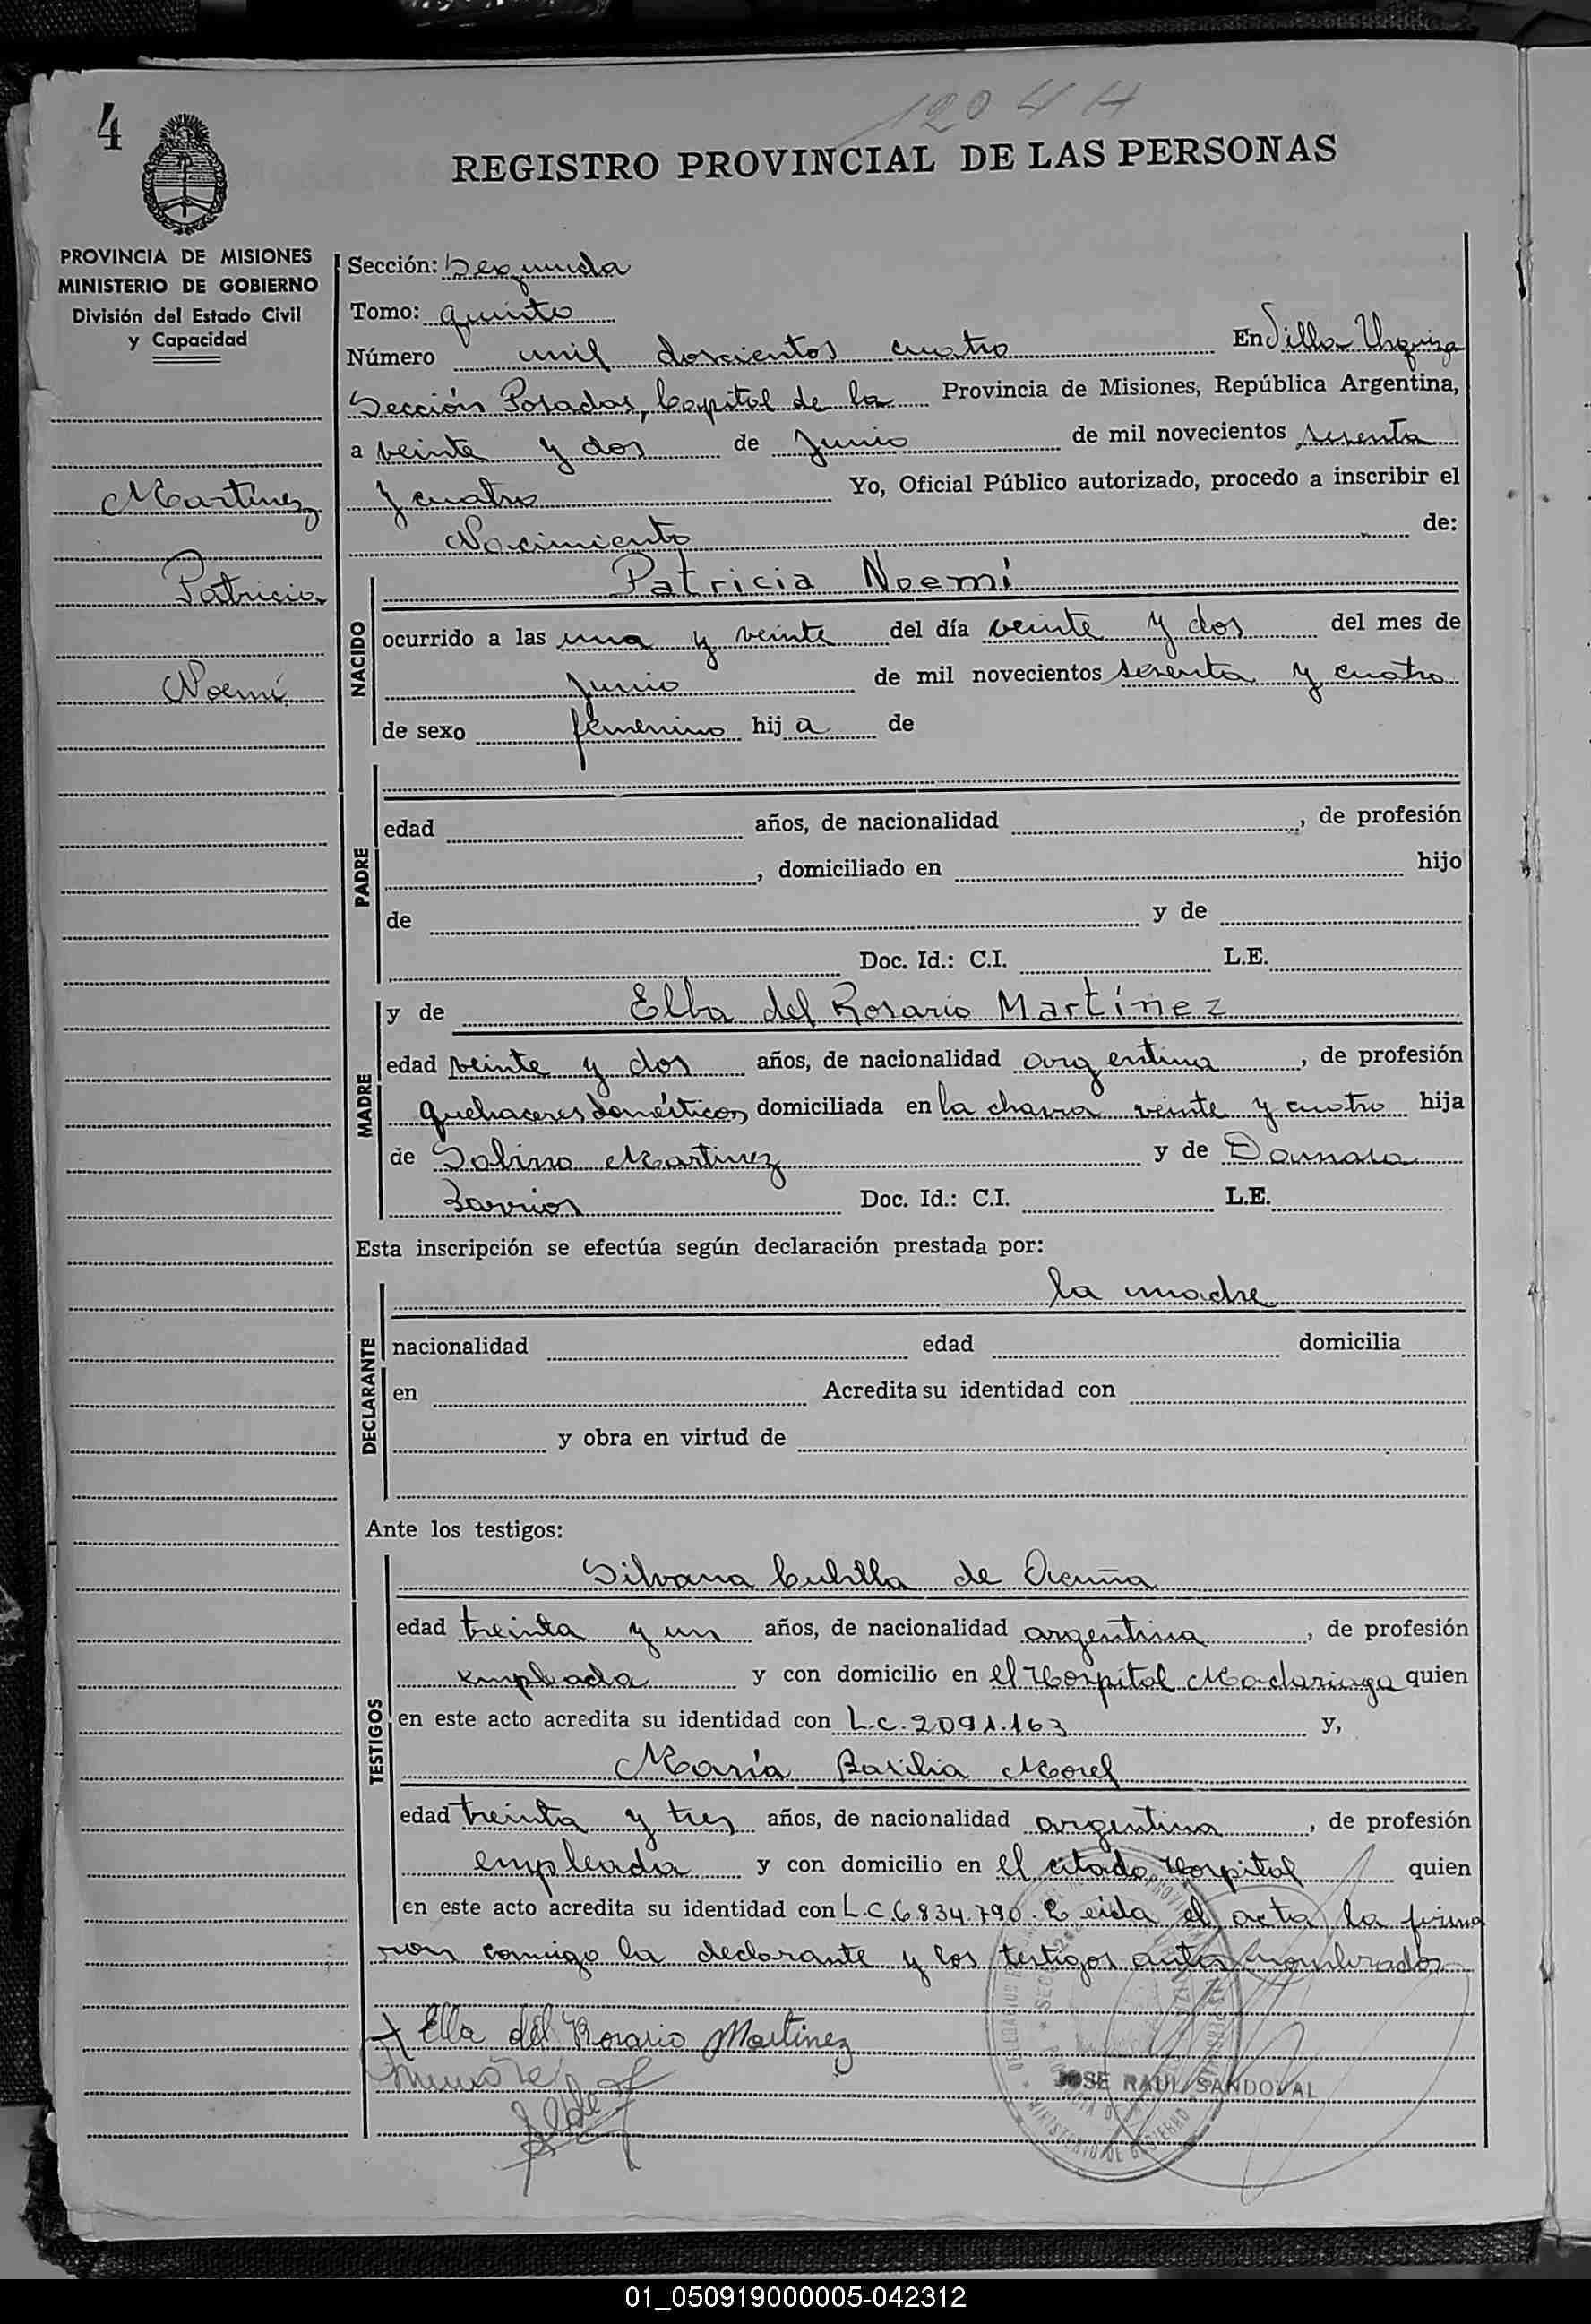 4
1204 H
REGISTRO PROVINCIAL DE LAS PERSONAS
PROVINCIA DE MISIONES
MINISTERIO DE GOBIERNO
División del Estado Civil
y Capacidad
Martinez
Patricia
Noemí
Sección: Segunda
Tomo: quinto
Número mil doscientos cuatro En Villa Urquiza
Sección Posadas, Capital de la Provincia de Misiones, República Argentina,
a veinte y dos de Junio de mil novecientos sesenta
y cuatro Yo, Oficial Público autorizado, procedo a inscribir el
Nacimiento de:
NACIDO
Patricia Noemí
ocurrido a las una y veinte del día veinte y dos del mes de
Junio de mil novecientos sesenta y cuatro
de sexo femenino hija de
PADRE
edad años, de nacionalidad , de profesión
, domiciliado en hijo
de y de
Doc. Id.: C.I. L.E.
MADRE
y de Elba del Rosario Martínez
edad veinte y dos años, de nacionalidad argentina , de profesión
quehaceres domésticos, domiciliada en la chacra veinte y cuatro hija
de Sabino Martinez y de Damasa
Barrios Doc. Id.: C.I. L.E.
Esta inscripción se efectúa según declaración prestada por:
DECLARANTE
la madre
nacionalidad edad domicilia
en Acredita su identidad con
y obra en virtud de
Ante los testigos:
TESTIGOS
Silvana Cubilla de Acuña
edad treinta y un años, de nacionalidad argentina , de profesión
empleada y con domicilio en el Hospital Madariaga quien
en este acto acredita su identidad con L.C. 2.091.163 y,
María Basilia Morel
edad treinta y tres años, de nacionalidad argentina , de profesión
empleada y con domicilio en el citado Hospital quien
en este acto acredita su identidad con L.C. 6.834.790. Leida el acta la firma
ron conmigo la declarante y los testigos antes nombrados
Elba del Rosario Martinez
JOSE RAUL SANDOVAL
MINISTERIO DE GOBIERNO
01_050919000005-042312